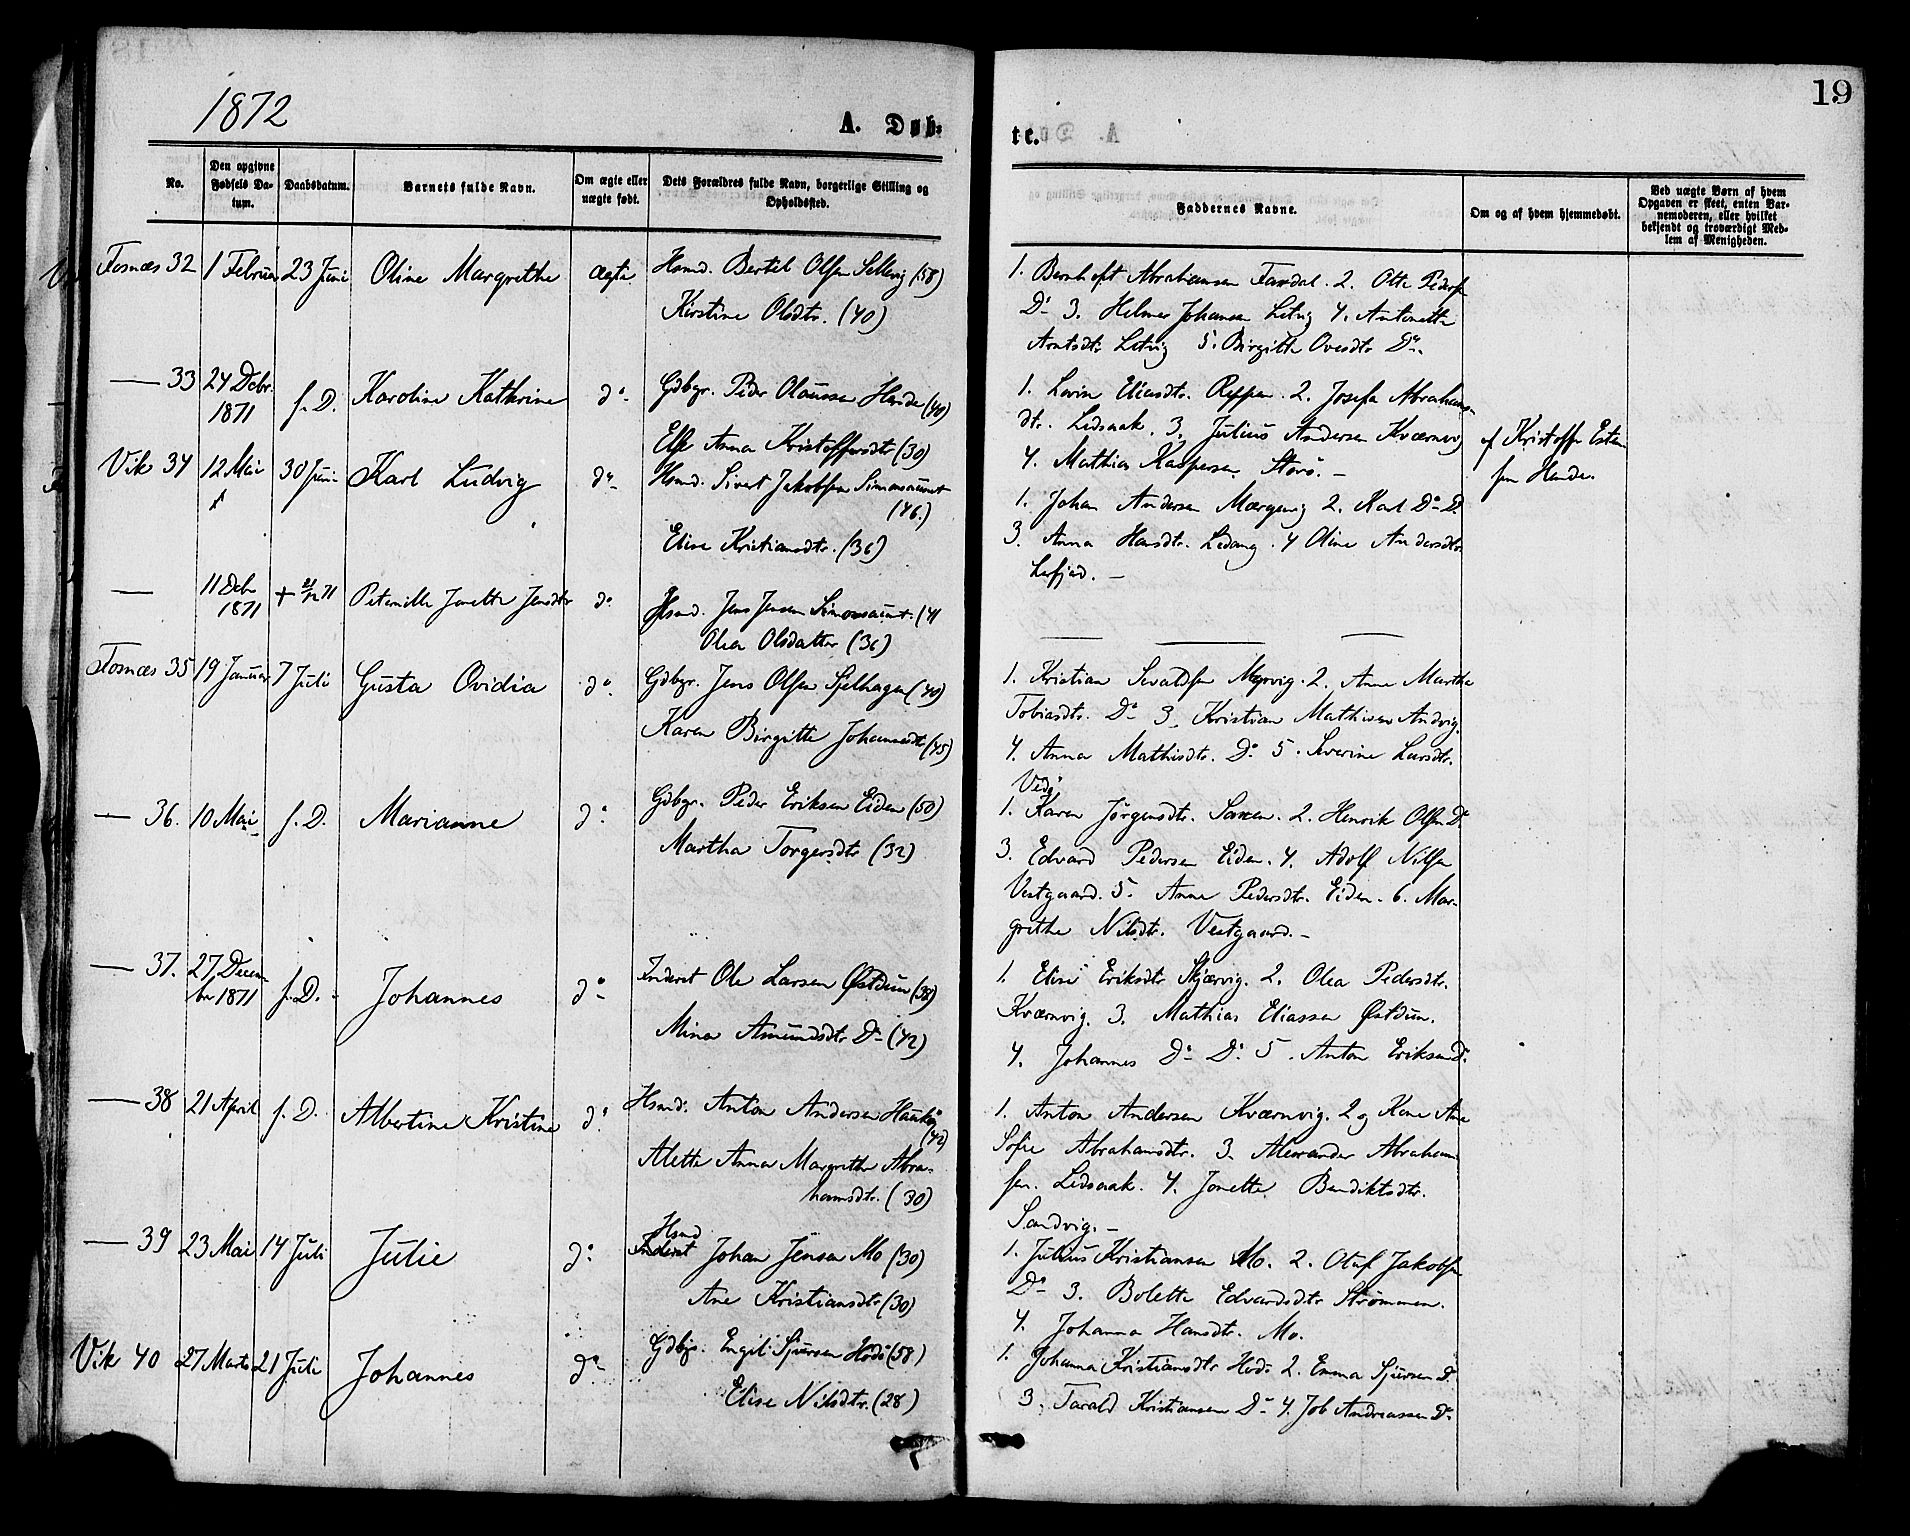 19
1872
A. Døb-
te.
No.
Den opgivne
Fødsels Da-
tum.
Daabsdatum.
Barnets fulde Navn.
Om ægte eller
uægte født.
Dets Forældres fulde Navn, borgerlige Stilling og
Opholdssted.
Faddernes Navne.
Om og af hvem hjemmedøbt.
Ved uægte Børn af hvem
Opgaven er skeet, enten Bar-
nemoderen, eller hvilket
bekjendt og troværdigt Med-
lem af Menigheden.
Fosnæs 32 1 Februar 23 Juni Oline Margrethe ægte Hsmd. Bertel Olsen Sellevig (58)
Kirstine Olsdtr. (40)
1. Bernhoft Abrahamsen Faxdal. 2. Otte Peders
Do 3. Helmer Johansen Letvig 4. Antonette
Arntsdtr Letvig 5. Birgitte Ovesdtr Do.
— 33 24 Decbr. 1871 s. D. Karoline Kathrine do Gdbgr. Peder Olaussen Hende (40)
Else Anna Kristoffersdtr (30)
1. Lovise Eliasdtr. Reppen. 2. Josefa Abrahams-
dtr. Lidsaak. 3. Julius Andersen Kværnvig
4. Mathias Kaspersen Storø. —
af Kristoffer Esten
sen Hende.
Vik 34 12 Mai 30 Juni Karl Ludvig do Hsmd. Sivert Jakobsen Simonsaunet
(46.)
Elise Kristiansdtr. (36)
1. Johan Andersen Mærgenvig 2. Karl Do Do
3. Anna Hansdtr. Ledang. 4 Oline Andersdtr.
— 11 Decbr 1871 + 21/12 71 Peternille Jonette Jensdtr do Hsmd. Jens Jensen Simonsaunet. (41
Olea Olsdatter (36)
Fosnæs 35 19 Januar 7 Juli Gusta Ovidia do Gdbgr. Jens Olsen Sjelhagen (40)
Karen Birgitte Johannesdtr (45)
1. Kristian Sivaldsen Myrvig. 2. Anne Martha
Tobiasdtr. Do 3. Kristian Mathisen Andvig.
4. Anna Mathisdtr. Do 5. Severine Larsdtr.
— 36. 10 Mai s. D. Marianne do Gdbgr. Peder Eriksen Eiden (50)
Martha Torgersdtr (32)
1. Karen Jørgensdtr. Saxen. 2. Henrik Olsen Do
3. Edvard Pedersen Eiden. 4. Adolf Nilsen
Vestgaard. 5. Anne Pedersdtr. Eiden. 6. Mar-
grethe Nilsdtr. Vestgaard. —
— 37. 27 Decem-
ber 1871 s. D. Johannes do Inderst Ole Larsen Østduun (38)
Mina Amundsdtr Do (42)
1. Elise Eriksdtr Skjærvig. 2. Olea Pedersdtr.
Kværnvig. 3. Mathias Eliassen Østduun.
4. Johannes Do Do 5. Anton Eriksen Do.
— 38 21 April s. D. Albertine Kristine do Hsmd. Anton Andersen Haukø
(42)
Alette Anna Margrethe Abra-
hamsdtr. (30)
1. Anton Andersen Kværnvig. 2 og Kone Ane
Sofie Abrahamsdtr. 3. Alexander Abraham
sen Lidsaak. 4. Jonette Bendiktsdtr.
Sandvig. —
— 39 23 Mai 14 Juli Julie do Hsmd
Inderst Johan Jensen Mo (30)
Ane Kristiansdtr (30)
1. Julius Kristiansen Mo. 2. Olaf Jakobsen
Do 3. Bolette Edvardsdtr Strømmen.
4. Johanna Hansdtr. Mo.
Vik 40 27 Marts 21 Juli Johannes do Gdbgr. Engel Sjursen Hodø (58)
Elise Nilsdtr. (28)
1. Johanna Kristiansdtr Hodø 2. Emma Sjursen Do
3. Tarald Kristiansen Do 4. Job Andreassen Do